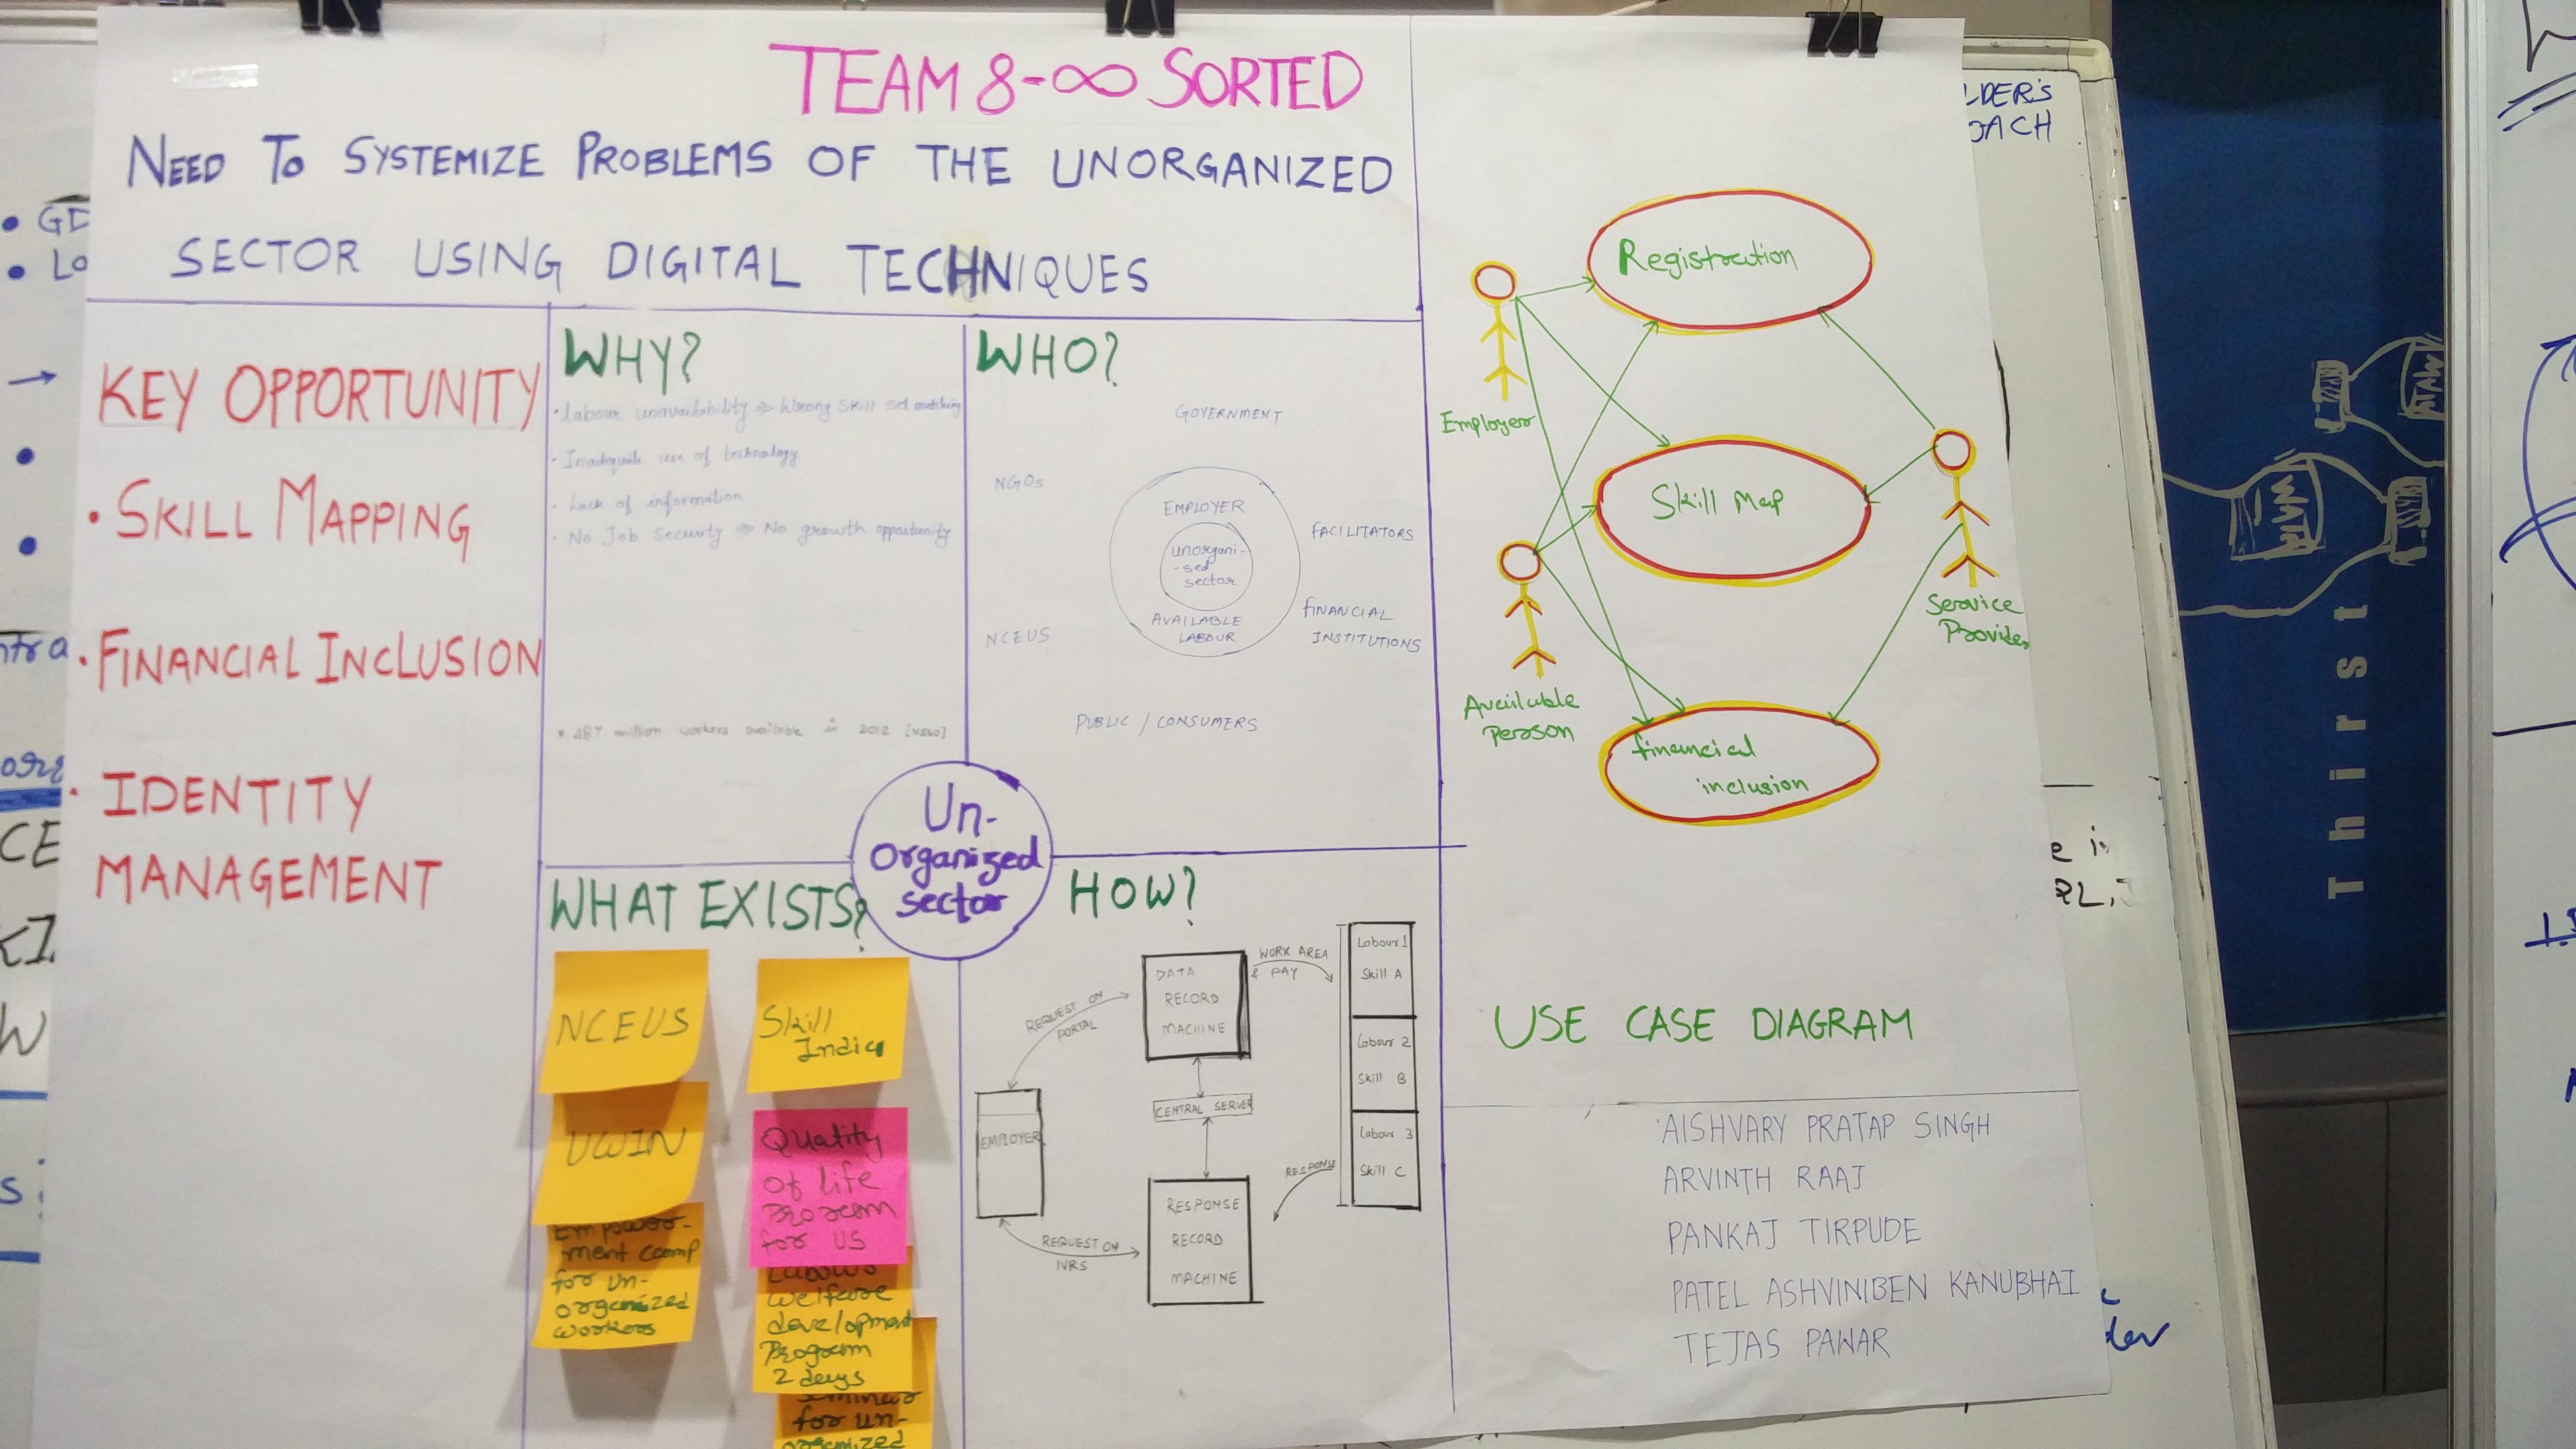 TEAM 8-∞ SORTED
NEED TO SYSTEMIZE PROBLEMS OF THE UNORGANIZED
SECTOR USING DIGITAL TECHNIQUES
KEY OPPORTUNITY
• SKILL MAPPING
• FINANCIAL INCLUSION
• IDENTITY
MANAGEMENT
WHY?
• Labour unavailability ⇒ Wrong skill set matching
• Inadequate use of technology
• Lack of information
• No Job Security ⇒ No growth opportunity
* 487 million workers available in 2012 [NSSO]
WHO?
GOVERNMENT
NGOs
EMPLOYER
FACILITATORS
unorgani-
-sed
sector
AVAILABLE
LABOUR
FINANCIAL
INSTITUTIONS
NCEUS
PUBLIC / CONSUMERS
Un-
Organized
sector
WHAT EXISTS?
NCEUS
UWIN
Empower-
ment camp
for un-
organized
workers
Skill
India
Quality
of life
Program
for US
Labour
welfare
development
Program
2 days
for un-
organized
HOW?
REQUEST ON
PORTAL
DATA
RECORD
MACHINE
WORK AREA
& PAY
Labour 1
Skill A
Labour 2
Skill B
Labour 3
Skill C
CENTRAL SERVER
EMPLOYER
RESPONSE
RESPONSE
RECORD
MACHINE
REQUEST ON
IVRS
Registration
Employer
Skill Map
Service
Provider
Available
Person
financial
inclusion
USE CASE DIAGRAM
AISHVARY PRATAP SINGH
ARVINTH RAAJ
PANKAJ TIRPUDE
PATEL ASHVINIBEN KANUBHAI
TEJAS PAWAR
Thirst